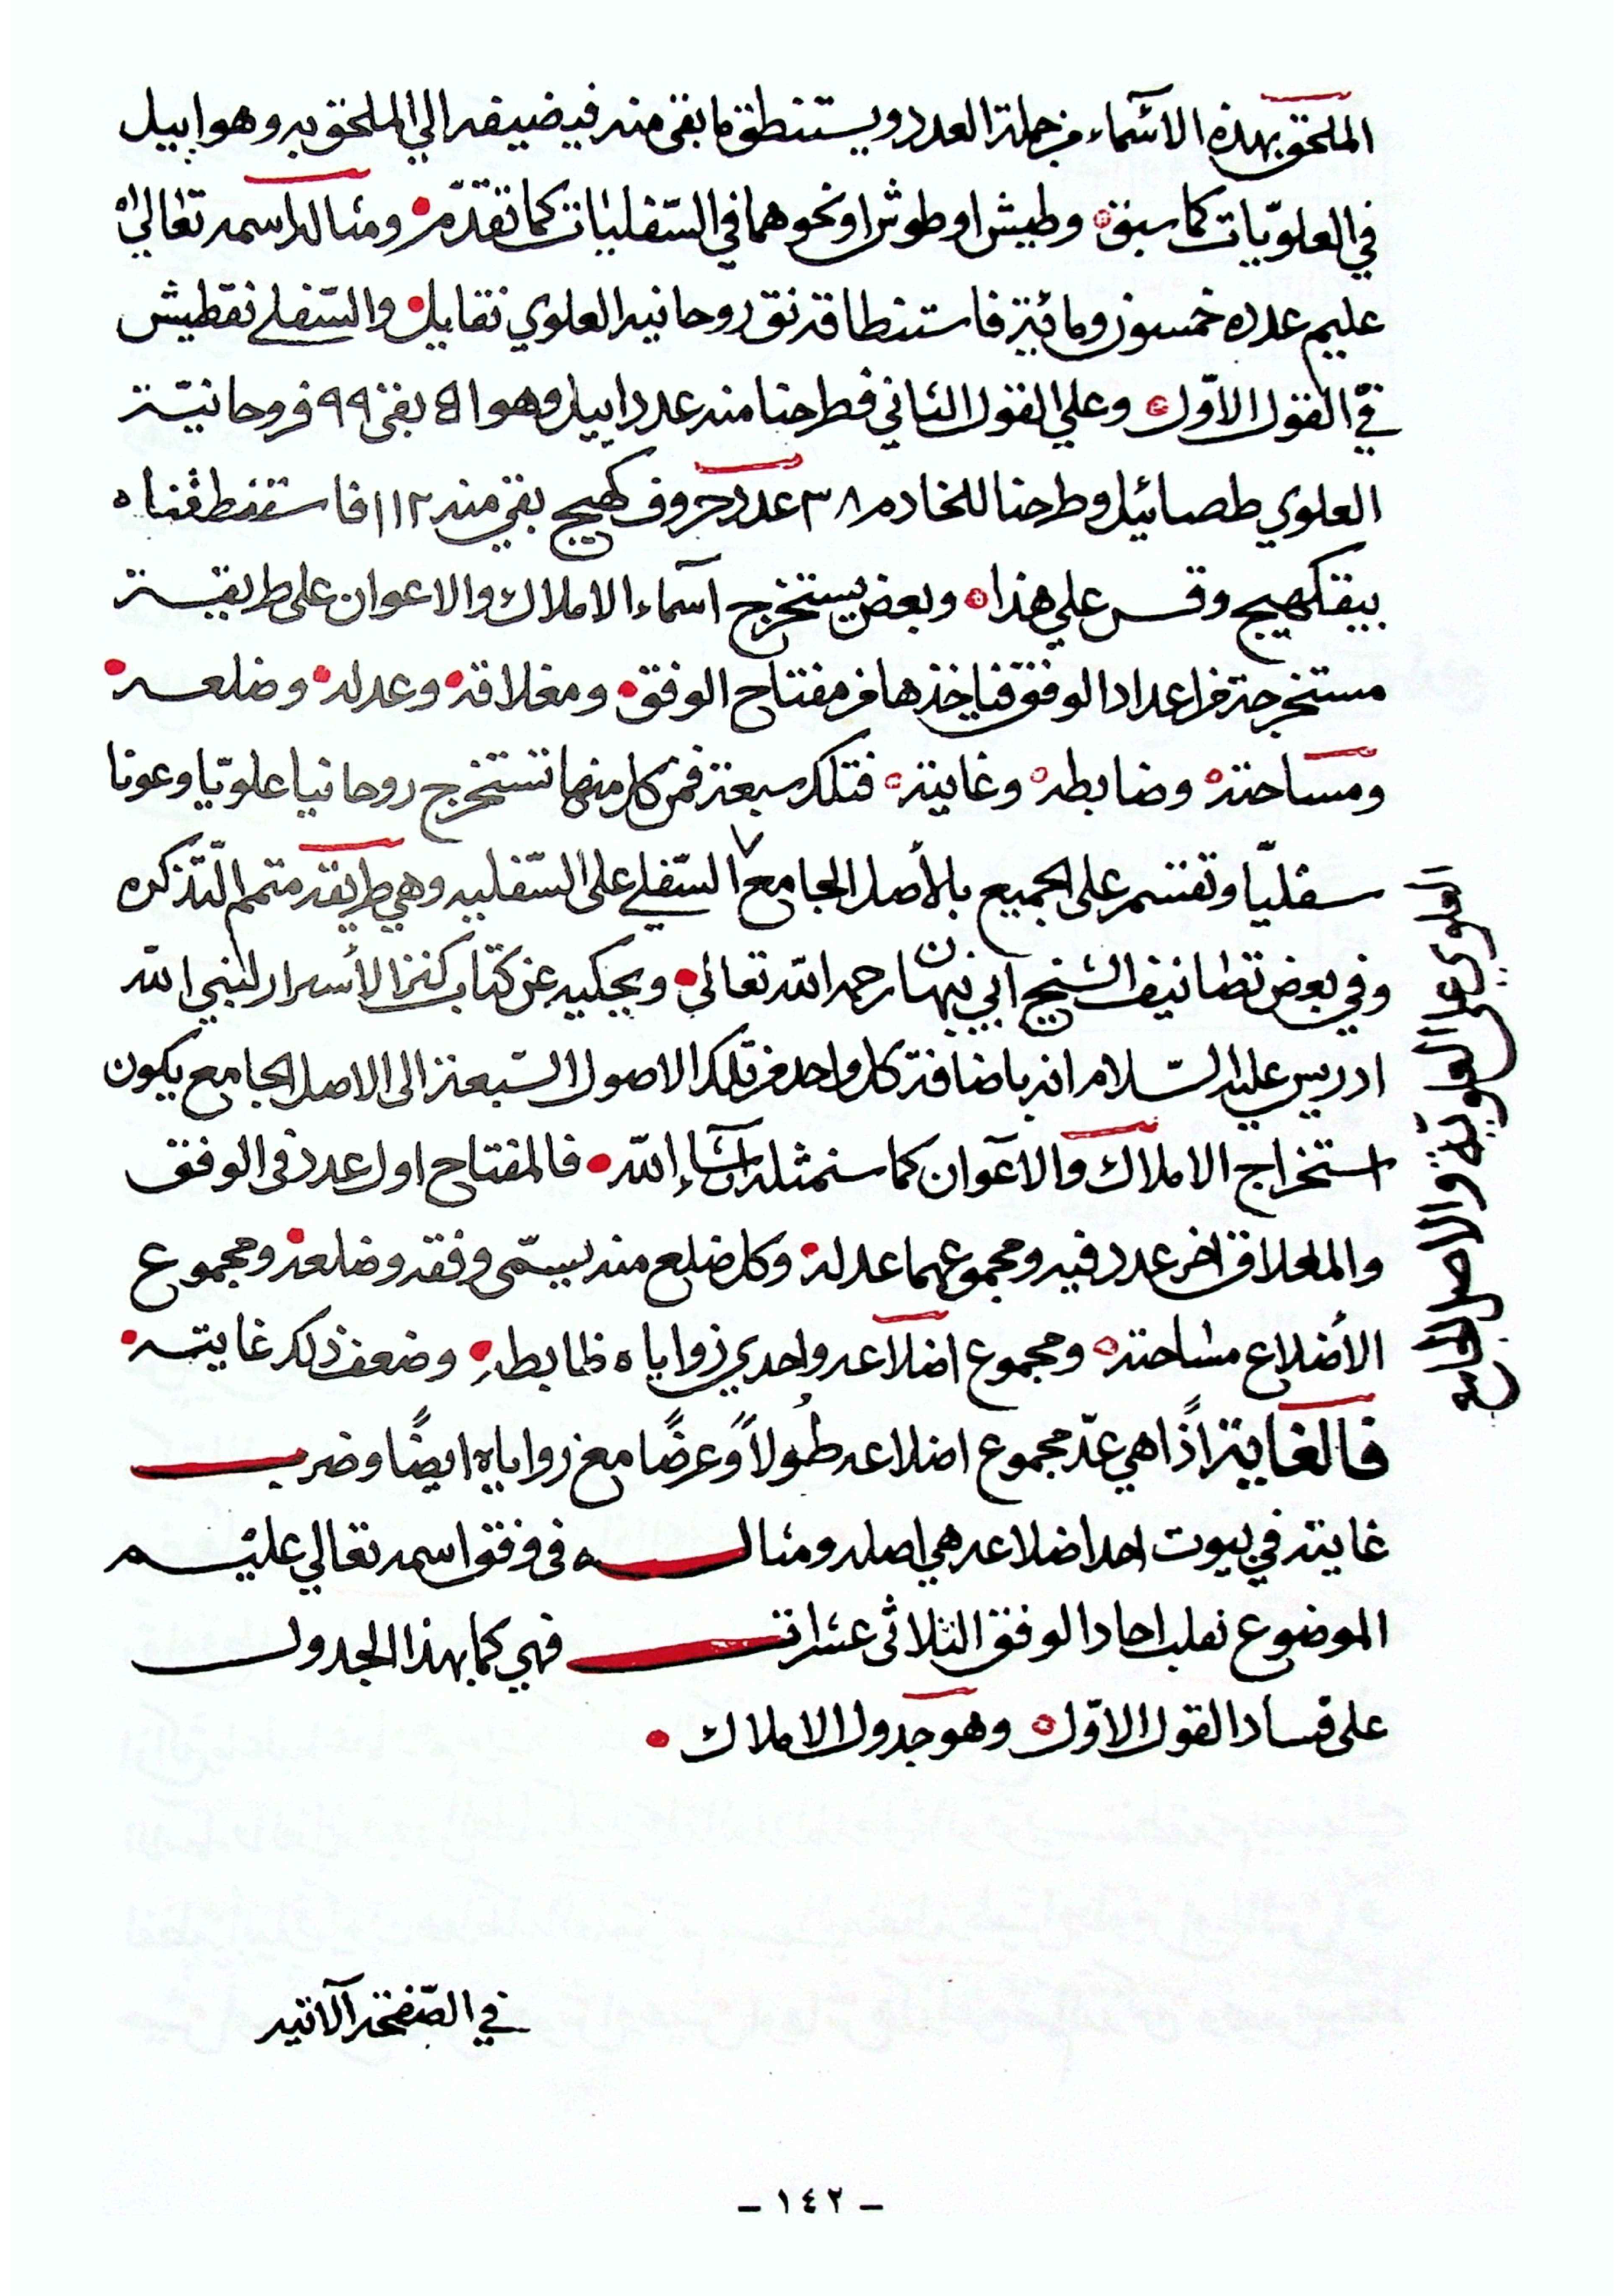 الملحق بهذه الأسماء من جملة العدد ويستنطق ما بقي منه فيضيفه الي الملحق به وهو اييل
في العلويّات كما سبق وطيش او طوش او نحوهما في السّفليات كما تقدّم ومثاله اسمه تعالي
عليم عدده خمسون ومائية فاستنطاقه نق روحانيه العلوي نقاييل والسّفلي نقطيش
في القول الاوّل وعلي القول الثاني فطرحنا منه عدد اييل وهو ٥١ بقي ٩٩ فروحانيّة
العلوي طصائيل وطرحنا للخادم ٣٨ عدد حروف كهيج بقي منه ١١٢ فاستنطقناه
بيقكهيج وقس علي هذا وبعض يستخرج اسماء الاملاك والاعوان على طريقة
مستخرجة من اعداد الوفق فياخذها من مفتاح الوفق ومغلاقه وعدله وضلعه
ومساحته وضابطه وغايته فتلك سبعة فمن كل منها تستخرج روحانيا علويّا وعونا
سفليّا وتقسم على الجميع بالأصل الجامع السّفلي على السّفليه وهي طريقة متمم التّذكره
وفي بعض تصانيف الشيخ ابي نبهان رحمه الله تعالى ويحكيه عن كتاب كنز الأسرار لنبي الله
ادريس عليه السّلام انه باضافة كل واحد من تلك الاصول السّبعة الى الاصل الجامع يكون
استخراج الاملاك والاعوان كما سنمثله إن شاء الله فالمفتاح اول عدد في الوفق
والمغلاق اخر عدد فيه ومجموعهما عدله وكل ضلع منه يسمّى وفقه وضلعه ومجموع
الأضلاع مساحته ومجموع اضلاعه واحدي زواياه ضابطه وضعف ذلك غايته
فالغاية اذًا هي عدّ مجموع اضلاعه طُولاً وعرضًا مع زواياه ايضًا وضرب
غايته في بيوت احد اضلاعه هي اصله ومثاله في وفق اسمه تعالي عليم
الموضوع نقلب احاد الوفق الثلاثي عشراته فهي كما بهذا الجدول
على فساد القول الاوّل وهو جدول الاملاك
العلوي على العلويّة والاصل الجامع
في الصّفحة الآتيه
- ١٤٢ -